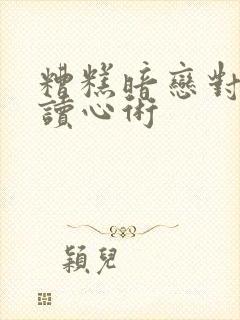 糟糕暗戀對
讀心術
穎兒